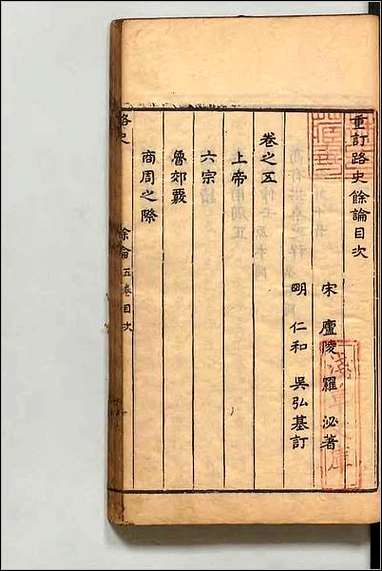 重訂路史餘論目次
宋廬陵羅泌著
明仁和吳弘基訂
卷之五
上帝
六宗
魯郊覈
商周之際
路史
餘論五卷目次